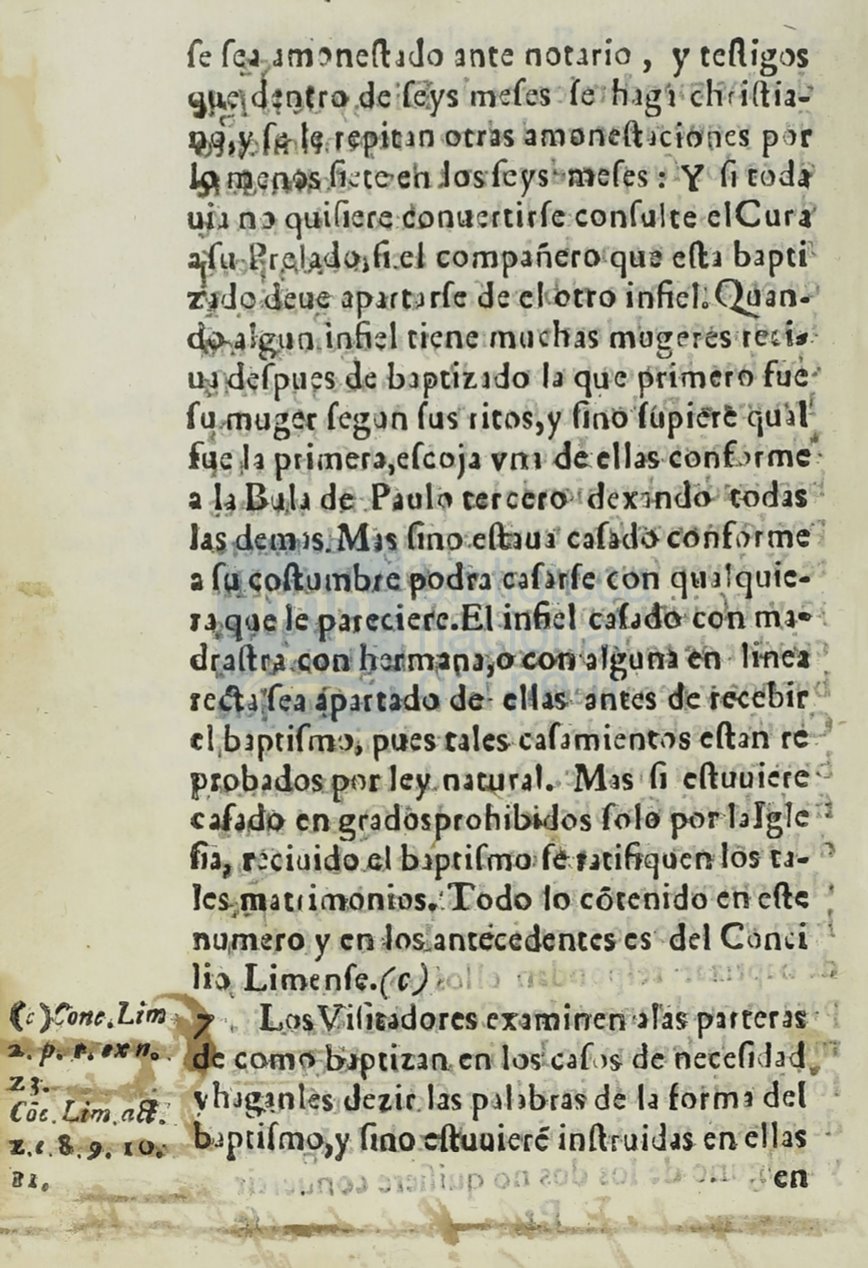 se sea amonestado ante notario, y testigos
que dentro de seys meses se haga christia-
no, y se le repitan otras amonestaciones por
lo menos siete en los seys meses: Y si toda
uia no quisiere conuertirse consulte el Cura
a su Prelado, si el compañero que esta bapti
zado deue apartarse de el otro infiel. Quan-
do algun infiel tiene muchas mugeres reci-
ua despues de baptizado la que primero fue
su muger segun sus ritos, y sino supiere qual
fue la primera, escoja vna de ellas conforme
a la Bula de Paulo tercero dexando todas
las demas. Mas sino estaua casado conforme
a su costumbre podra casarse con qualquie-
ra que le pareciere. El infiel casado con ma-
drastra con hermana, o con alguna en linea
recta sea apartado de ellas antes de recebir
el baptismo, pues tales casamientos estan re
probados por ley natural. Mas si estuuiere
casado en grados prohibidos solo por la Igle
sia, reciuido el baptismo se ratifiquen los ta-
les matrimonios. Todo lo cōtenido en este
numero y en los antecedentes es del Conci
lio Limense. (c)
(c) Conc. Lim
2. p. r. ex n.
23.
Cōc. Lim. act.
2. c. 8. 9. 10.
7 Los Visitadores examinen a las parteras
de como baptizan en los casos de necesidad,
y haganles dezir las palabras de la forma del
baptismo, y sino estuuierē instruidas en ellas
en